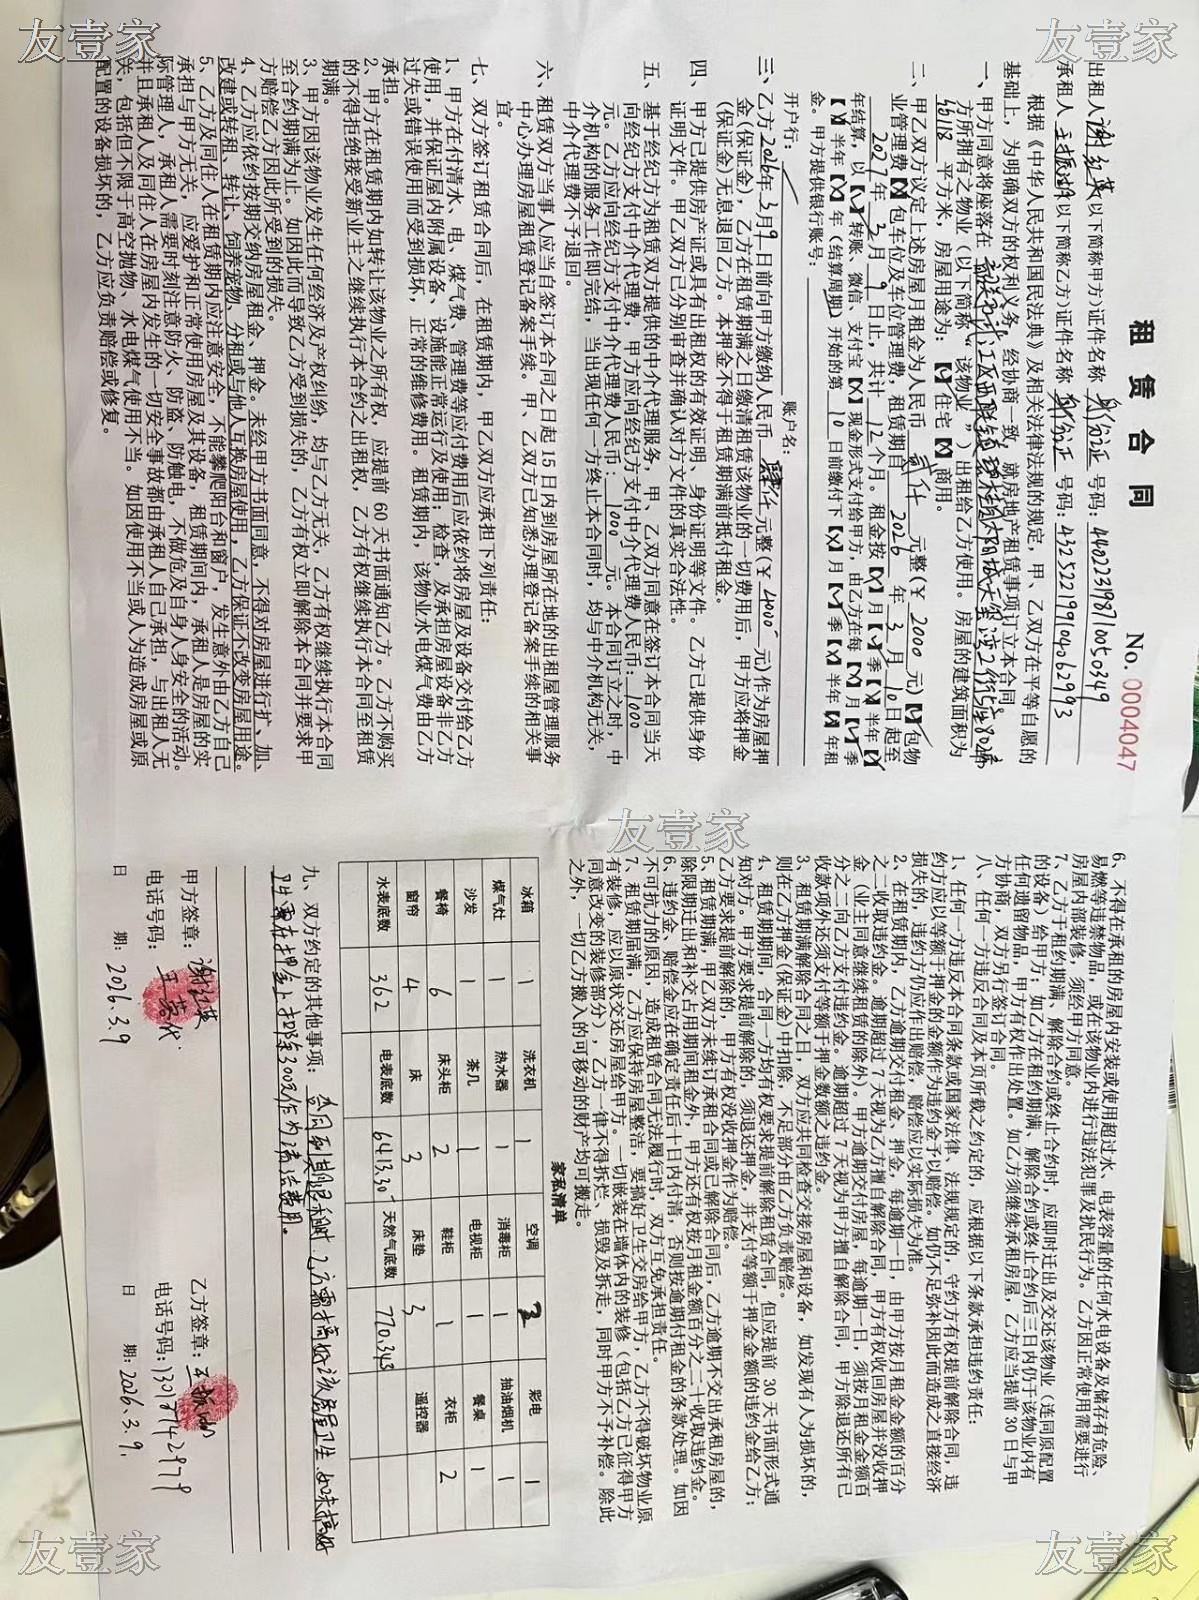 租赁合同 No. 0004047
出租人 谢红英 以下简称甲方)证件名称 身份证 号码: 440223198710050349
承租人 以下简称乙方)证件名称 身份证 号码: 432522199104062993
根据《中华人民共和国民法典》及相关法律法规的规定,甲、乙双方在平等自愿的
基础上,为明确双方的权利义务,经协商一致,就房地产租赁事项订立本合同。
一、甲方同意将座落在
方所拥有之物业(以下简称“该物业”)出租给乙方使用。房屋的建筑面积为
平方米,房屋用途为:【√】住宅【】商用。
二、甲乙双方议定上述房屋月租金为人民币 贰仟 元整(¥ 2000 元)【】包物
业管理费【】包车位及车位管理费,租赁期自 2026 年 3 月 10 日起至
2027 年 3 月 9 日止,共计 12 个月。租金按【】月【】季【】半年【】
年结算,以【】转账、微信、支付宝【】现金形式支付给甲方,由乙方在每【】月【】季
【】半年【】年(结算周期)开始的第 10 日前缴付下【】月【】季【】半年【】年租
金。甲方提供银行账号:
开户行: 账户名:
三、乙方 2026 年 3 月 9 日前向甲方缴纳人民币 肆仟 元整(¥ 4000 元)作为房屋押
金(保证金),乙方在租赁期满之日缴清租赁该物业的一切费用后,甲方应将押金
(保证金)无息退回乙方。本押金不得于租赁期满前抵付租金。
四、甲方已提供房产证或具有出租权的有效证明、身份证明等文件。乙方已提供身份
证明文件。甲乙双方已分别审查并确认对方文件的真实合法性。
五、基于经纪方为租赁双方提供的中介代理服务,甲、乙双方同意在签订本合同当天
向经纪方支付中介代理费,甲方应向经纪方支付中介代理费人民币: 1000
元。乙方应向经纪方支付中介代理费人民币: 1000 元。本合同订立之时,中
介机构的服务工作即完结,当出现任何一方终止本合同时,均与中介机构无关,
中介代理费不予退回。
六、租赁双方当事人应当自签订本合同之日起 15 日内到房屋所在地的出租屋管理服务
中心办理房屋租赁登记备案手续。甲、乙双方已知悉办理登记备案手续的相关事
宜。
七、双方签订租赁合同后,在租赁期内,甲乙双方应承担下列责任:
1、甲方在付清水、电、煤气费、管理费等应付费用后应依约将房屋及设备交付给乙方
使用,并保证屋内附属设备、设施能正常运行及使用;检查,及承担房屋设备非乙方
过失或错误使用而受到损坏,正常的维修费用。租赁期内,该物业水电煤气费由乙方
承担。
2、甲方在租赁期内如转让该物业之所有权,应提前 60 天书面通知乙方。乙方不购买
的不得拒绝接受新业主之继续执行本合约之出租权,乙方有权继续执行本合同至租赁
期满。
3、甲方因该物业发生任何经济及产权纠纷,均与乙方无关,乙方有权继续执行本合同
至合约期满为止。如因此而导致乙方受到损失的,乙方有权立即解除本合同并要求甲
方赔偿乙方因此所受到的损失。
4、乙方应依约按期交纳房屋租金、押金。未经甲方书面同意,不得对房屋进行扩、加、
改建或转租、转让、饲养宠物、分租或与他人互换房屋使用,乙方保证不改变房屋用途。
5、乙方及同住人在租赁期内应注意安全,不能攀爬阳台和窗户,发生意外由乙方自己
承担与甲方无关,应爱护和正常使用房屋及其设备,租赁期间内,承租人是房屋的实
际管理人,承租人需要时刻注意防火、防盗、防触电,不做危及自身人身安全的活动。
并且承租人及同住人在房屋内发生的一切安全事故都由承租人自己承担,与出租人无
关,包括但不限于高空抛物、水电煤气使用不当。如因使用不当或人为造成房屋或原
配置的设备损坏的,乙方应负责赔偿或修复。
6、不得在承租的房屋内安装或使用超过水、电表容量的任何水电设备及储存有危险、
易燃等违禁物品,或在该物业内进行违法犯罪及扰民行为。乙方因正常使用需要进行
房屋内部装修,须经甲方同意。
7、乙方于租约期满、解除合约或终止合约时,应即时迁出及交还该物业(连同原配置
的设备)给甲方;如乙方在租约期满、解除合约或终止合约后三日内仍于该物业内有
任何遗留物品,甲方有权作出处置。如乙方须继续承租房屋,乙方应当提前 30 日与甲
方协商,双方另行签订合同。
八、任何一方违反合同及本页所载之约定的,应根据以下条款承担违约责任:
1、任何一方违反本合同条款或国家法律、法规规定的,守约方有权提前解除合同,违
约方应以等额于押金的金额作为违约金予以赔偿。如仍不足弥补因此而造成之直接经济
损失的,违约方仍应作出赔偿,赔偿应以实际损失为准。
2、在租赁期内,乙方逾期交付租金、押金,每逾期一日,由甲方按月租金金额的百分
之二收取违约金。逾期超过 7 天视为乙方擅自解除合同,甲方有权收回房屋并没收押
金(业主同意继续租赁的除外)。甲方逾期交付房屋,每逾期一日,须按月租金金额百
分之二向乙方支付违约金。逾期超过 7 天视为甲方擅自解除合同,甲方除退还所有已
收款项外还须支付等额于押金数额之违约金。
3、租赁期满解除合同之日,双方应共同检查交接房屋和设备,如发现有人为损坏的,
则在乙方押金(保证金)中扣除,不足部分由乙方负责赔偿。
4、租赁期期间,合同一方均有权要求提前解除租赁合同,但应提前 30 天书面形式通
知对方。甲方要求提前解除的,须退还押金,并支付等额于押金金额的违约金给乙方;
乙方要求提前解除的,甲方有权没收押金作为赔偿。
5、租赁期满,甲乙双方未续订承租合同或已解除合同后,乙方逾期不交出承租房屋的,
除限期迁出和补交占用期间租金外,甲方还有权按月租金额百分之二十收取违约金。
6、违约金、赔偿金应在确定责任后十日内付清,否则按逾期付租金的条款处理。如因
不可抗力的原因,造成租赁合同无法履行时,双方互免承担责任。
7、租赁期届满,乙方应保持房屋整洁,要搞好卫生交房给甲方,乙方不得破坏物业原
有装修,应以原状交还房屋给甲方。一切嵌装在墙体内的装修(包括乙方已征得甲方
同意改变的装修部分),乙方一律不得拆烂、损毁及拆走,同时甲方不予补偿。除此
之外,一切乙方搬入的可移动的财产均可搬走。
家私清单
冰箱 1 洗衣机 1 空调 3 彩电 1
煤气灶 1 热水器 1 消毒柜 1 抽油烟机 1
沙发 1 茶几 1 电视柜 1 餐桌 1
餐椅 6 床头柜 2 鞋柜 1 衣柜 2
窗帘 4 床 3 床垫 3 遥控器
水表底数 362 电表底数 6413.30 天然气底数 770.343
九、双方约定的其他事项: 合同到期退租时,乙方需搞好该房屋卫生,如未搞好
卫生需在押金上扣除300元作为清洁费用。
甲方签章: 谢红英 乙方签章:
电话号码: 电话号码: 13017142979
日 期: 2026.3.9 日 期: 2026.3.9.
友壹家
友壹家
友壹家
友壹家
友壹家